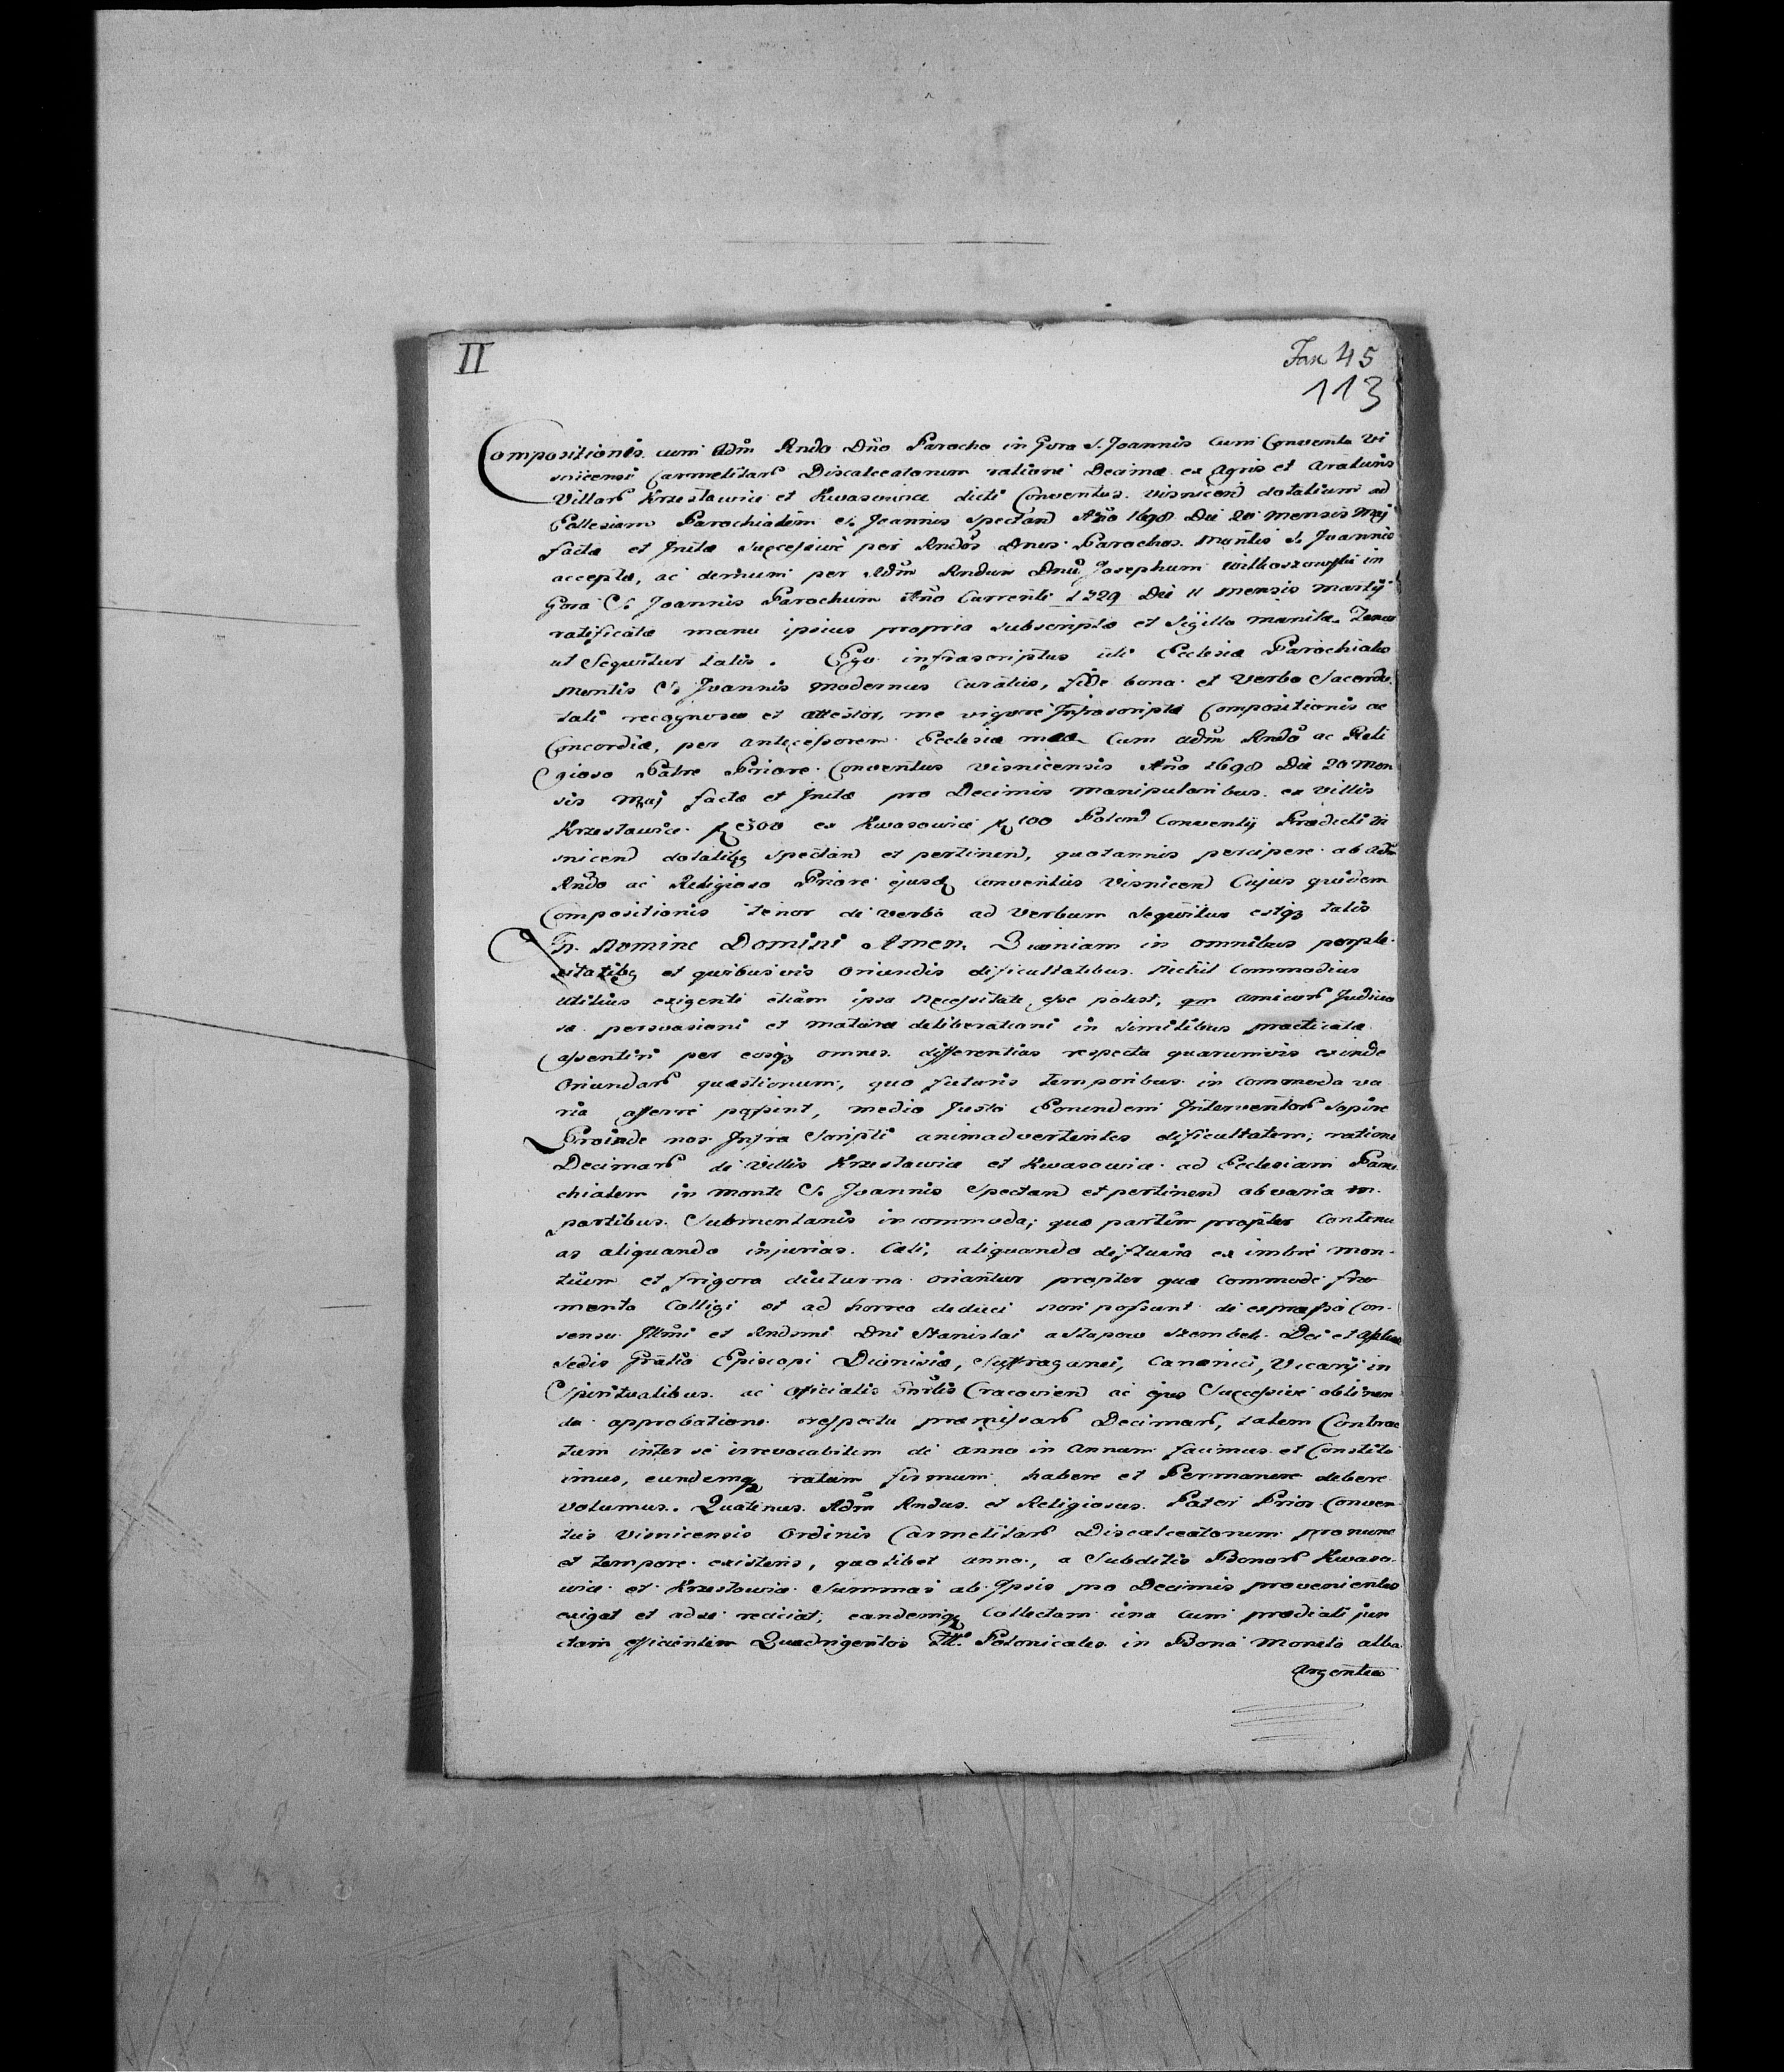 II
Fasc 45
113
Compositionis cum Adm Rndo Dno Parocho in Gora S. Joannis cum Conventu Vi
snicensi Carmelitarū Discalceatorum ratione Decimæ ex Agris et Araturis
Villarū Krzesławice et Kwasowice dicti Conventus Visnicen dotalium ad
Ecclesiam Parochialem S. Joannis Spectan Año 1698 Die 20 mensis Maj
factæ et Initæ Successive per Rndos Dnos Parochos Montis S. Joannis
acceptæ, ac demum per Adm Rndum Dnū Josephum in
Gora S. Joannis Parochum Año Currenti 1729 Die 11 mensis Martÿ
ratificatæ manu ipsius propria subscriptæ et Sigillo munitæ. Tenor
ut Sequitur talis. Ego infrascriptus uti Ecclesiæ Parochialis
Montis S. Joannis modernus Curatus, fide bona et Verbo Sacerdo
tali recognosco et attestor, me vigore Infrascriptæ Compositionis ac
Concordiæ, per antecessorem Ecclesiæ meæ cum Adm Rndo ac Reli
gioso Patre Priore Conventus Visnicensis Año 1698 Die 20 Men
sis Maj factæ et Initæ pro Decimis manipularibus ex Villis
Krzesławice 300 ex Kwasowice 100 Polon Conventq Prædicti Vi
snicen dotalibq spectan et pertinen, quotannis percipere ab Adm
Rndo ac Religioso Priore ejusdq Conventus Visnicen Cujus quidem
Compositionis tenor de verbo ad Verbum Sequitur estqz talis
In Nomine Domini Amen. Quoniam in omnibus perple
xitatibq et quibusvis oriundis dificultatibus nichil Commodius
utilius exigenti etiam ipsa Necessitate esse potest, qm amicorū Judicio
sæ persvasioni et maturæ deliberationi in similibus practicatæ
assentiri per eosqz omnes differentias respectu quarumvis exinde
Oriundarū quæstionum, quo futuris temporibus in commoda va
ria afferre possint, medio Justo Eorundem Interventorū sopire
Proinde nos Infra Scripti animadvertentes dificultatem, ratione
Decimarū de Villis Krzesławice et Kwasowice ad Ecclesiam Paro
chialem in Monte S. Joannis Spectan et pertinen ob varia in
partibus Submontanis incommoda, quo partim propter Continu
as aliquando injurias Cæli, aliquando difluvia ex imbre mon
tium et frigora diuturna oriantur propter quæ commode fru
menta Colligi et ad horrea deduci non possunt de expresso Con
sensu Illmi et Rndsmi Dni Stanislai a Słupow Szembek Dei et Aplicæ
Sedis Gratia Episcopi Dionisiæ, Suffraganei, Canonici, Vicarÿ in
Spiritualibus ac Oficialis Gnrlis Cracovien ac ejus Successive obtinen
da approbatione respectu præmissarū Decimarū, talem Contrac
tum inter se irrevocabilem de anno in Annum facimus et Constitu
imus, eundemqz ratum firmum habere et Permanere debere
Volumus. Quatenus Adm Rndus et Religiosus Pater Prior Conven
tus Visnicensis Ordinis Carmelitarū Discalceatorum pro nunc
et tempore existens, quolibet anno, a Subditis Bonorū Kwaso
wice et Krzesławice Summas ab Ipsis pro Decimis provenientes
exigat et ad se reciciat, eandemqz Collectam una cum prædiali jun
ctam efficientem Quadrigentos Polonicales in Bona Moneta alba
Argentea